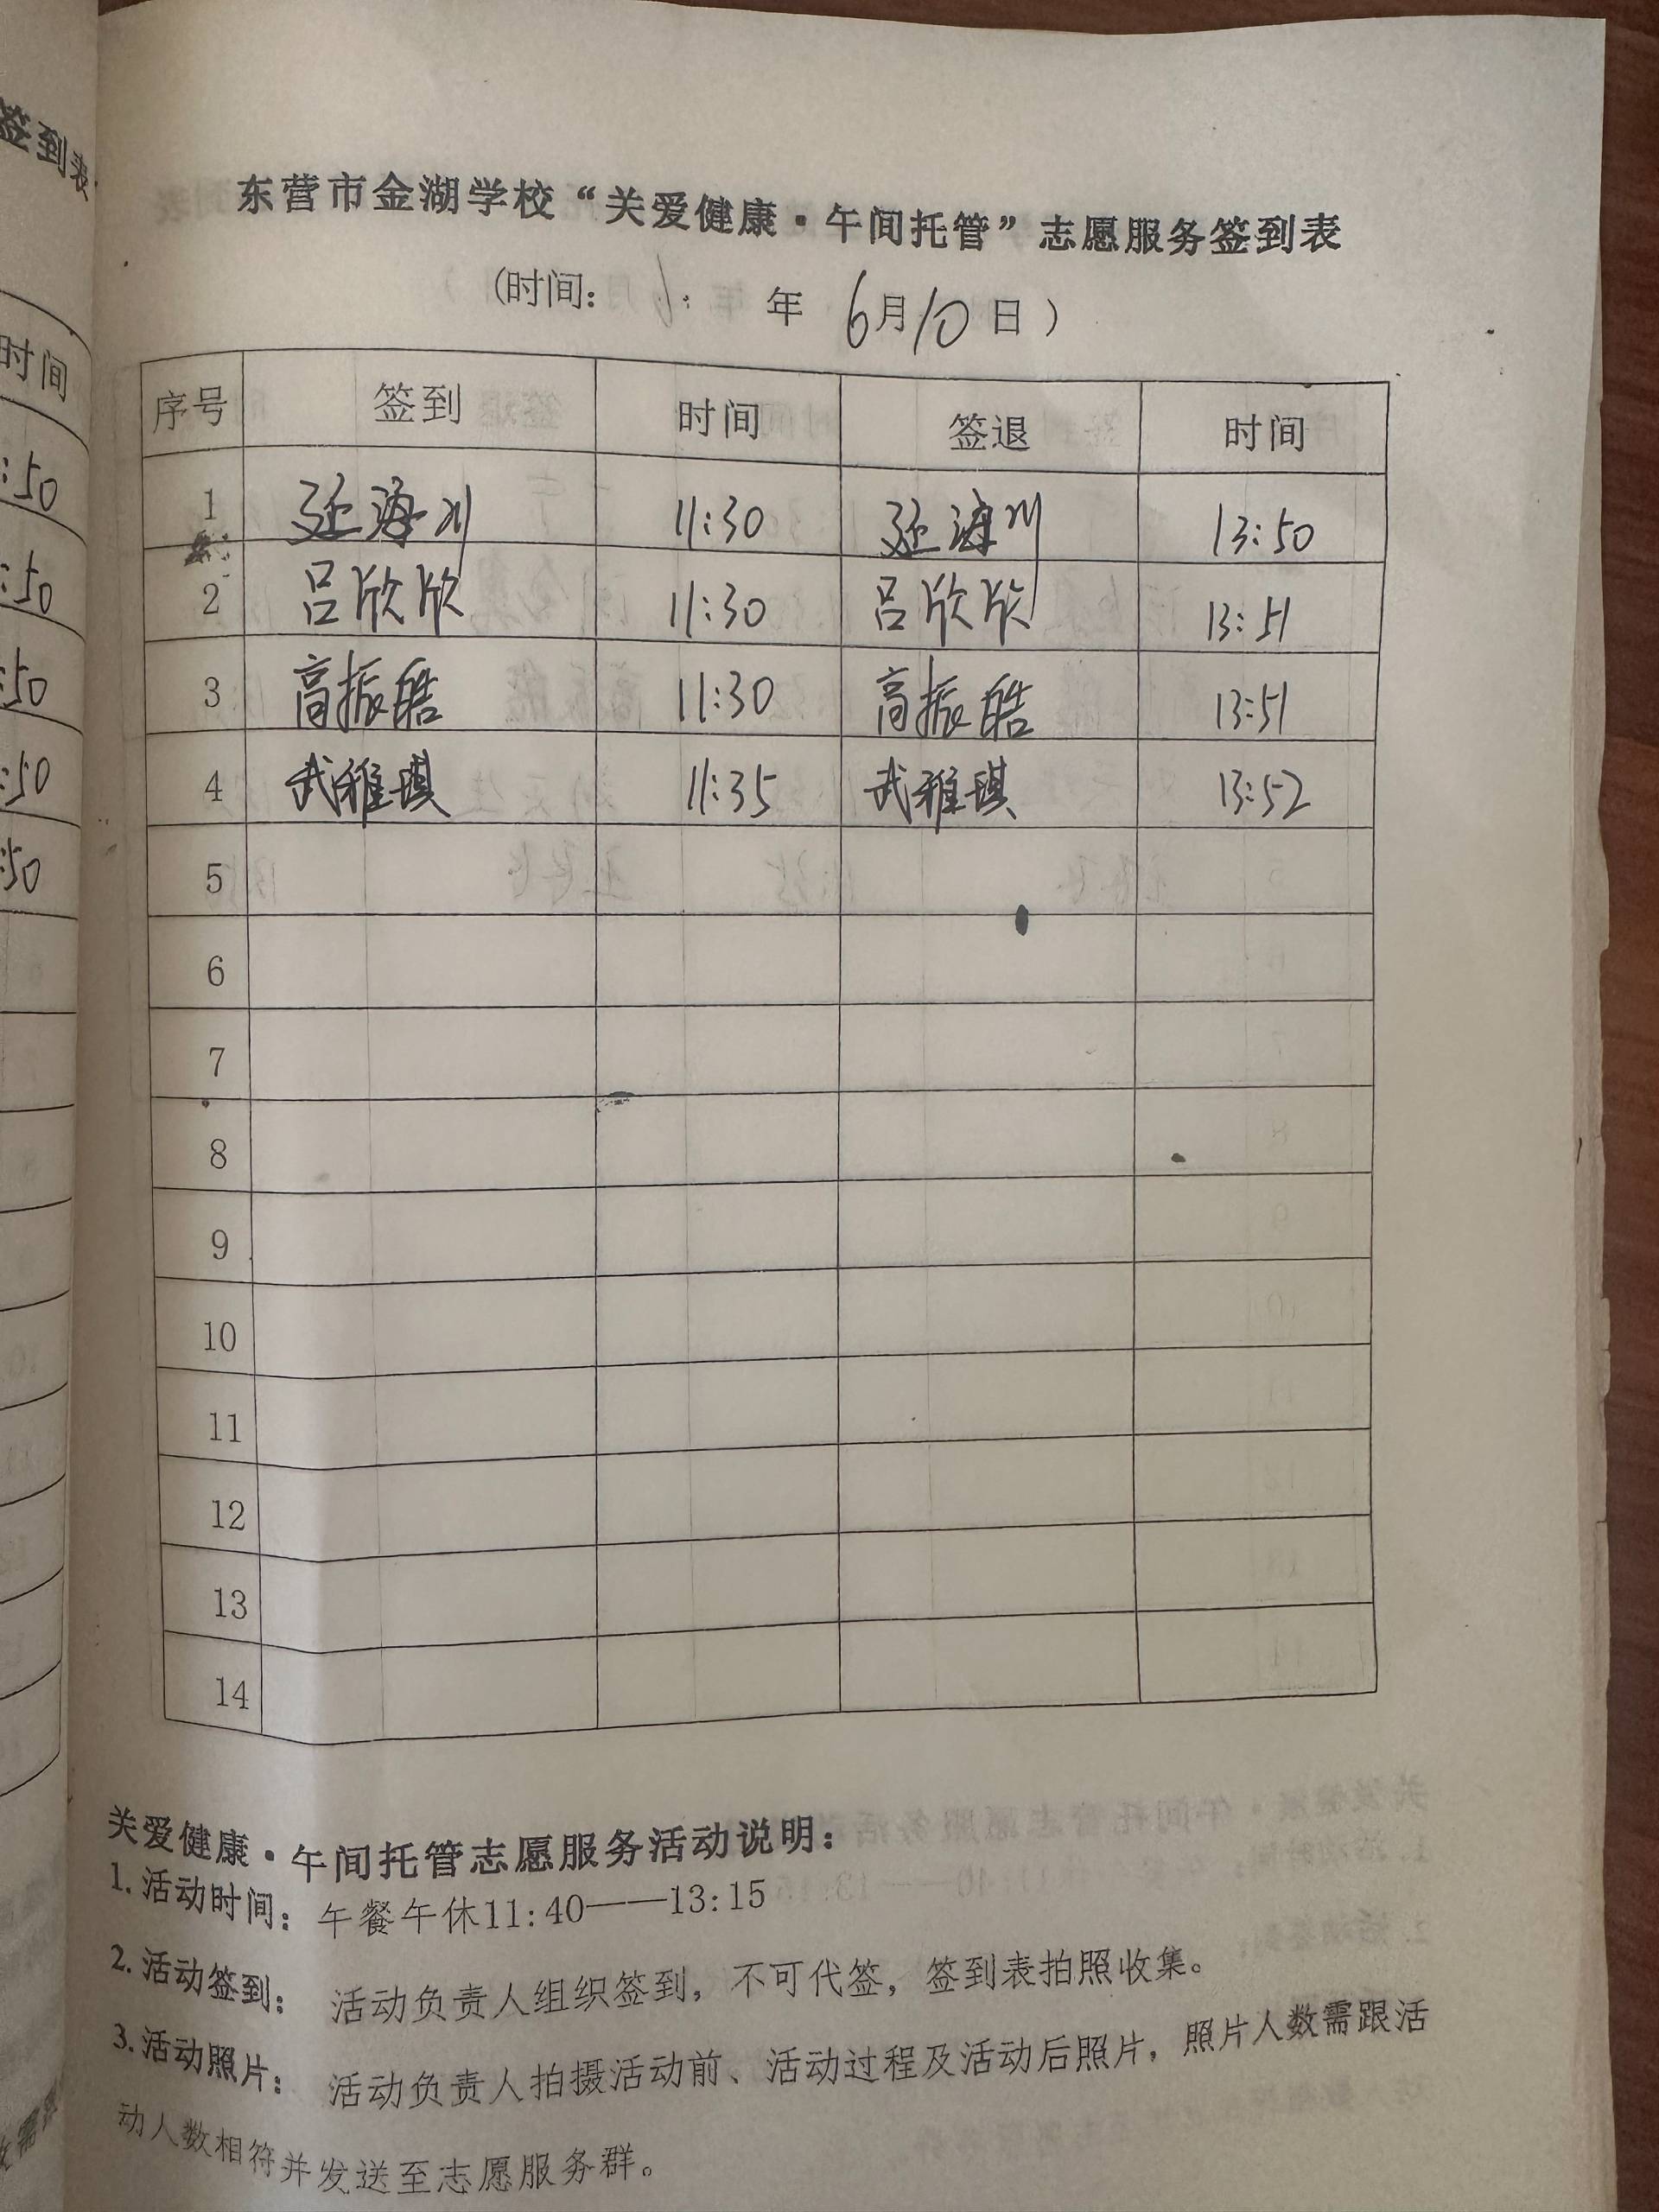 签到表
时间
:50
:50
:50
:50
:50
东营市金湖学校“关爱健康·午间托管”志愿服务签到表
（时间： 年 6月10日）
序号 签到 时间 签退 时间
1 延海川 11:30 延海川 13:50
2 吕欣欣 11:30 吕欣欣 13:51
3 高振皓 11:30 高振皓 13:51
4 武雅琪 11:35 武雅琪 13:52
5
6
7
8
9
10
11
12
13
14
关爱健康·午间托管志愿服务活动说明：
1.活动时间：午餐午休11:40——13:15
2.活动签到：活动负责人组织签到，不可代签，签到表拍照收集。
3.活动照片：活动负责人拍摄活动前、活动过程及活动后照片，照片人数需跟活
动人数相符并发送至志愿服务群。